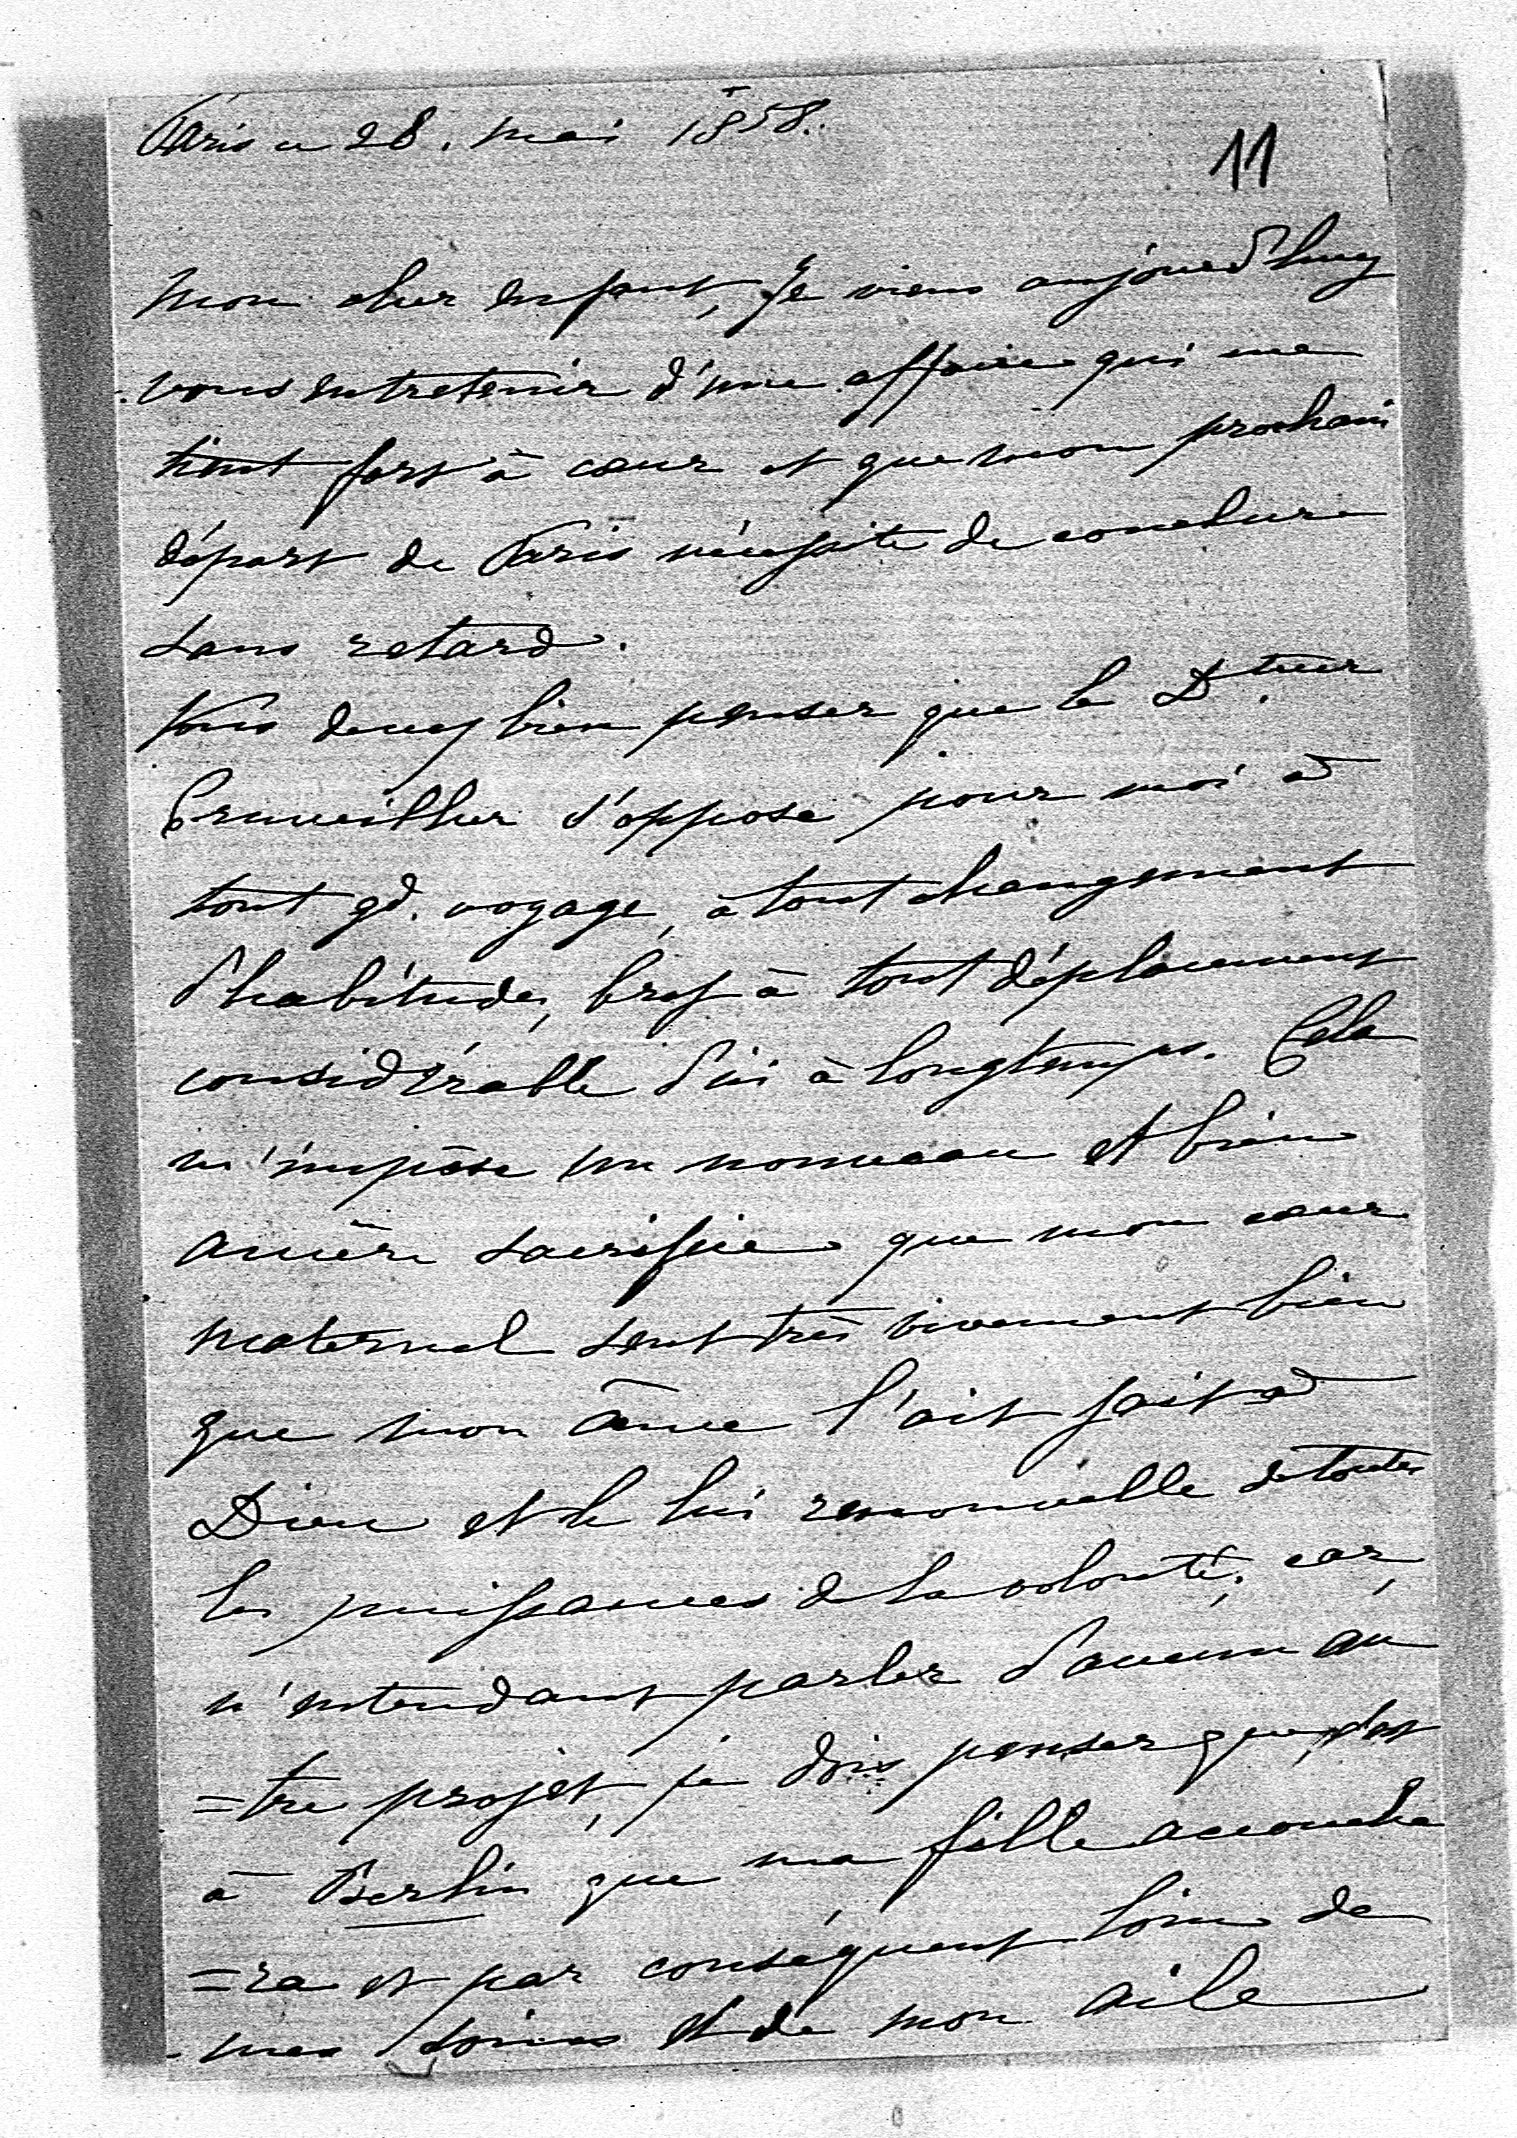 Paris ce 28. mai 1858.
11
Mon cher enfant, Je viens aujourd'huy
vous entretenir d'une affaire qui me
tient fort à cœur et que mon prochain
départ de Paris nécessite de conclure
sans retard.
Vous devez bien penser que le D.teur
Cruveilher s'oppose pour moi à
tout gd. voyage, à tout changement
d'habitudes, bref à tout déplacement
considérable d'ici à longtemps. Cela
m'impose un nouveau et bien
amère sacrifice que mon cœur
maternel sent très vivement bien
que mon âme l'ait fait à
Dieu et le lui renouvelle de toutes
les puissances de la volonté; car,
n'entendant parler d'aucun au
=tre projet, je dois penser que c'est
à Berlin que ma fille accouche
=ra et par conséquent loin de
mes soins et de mon aile